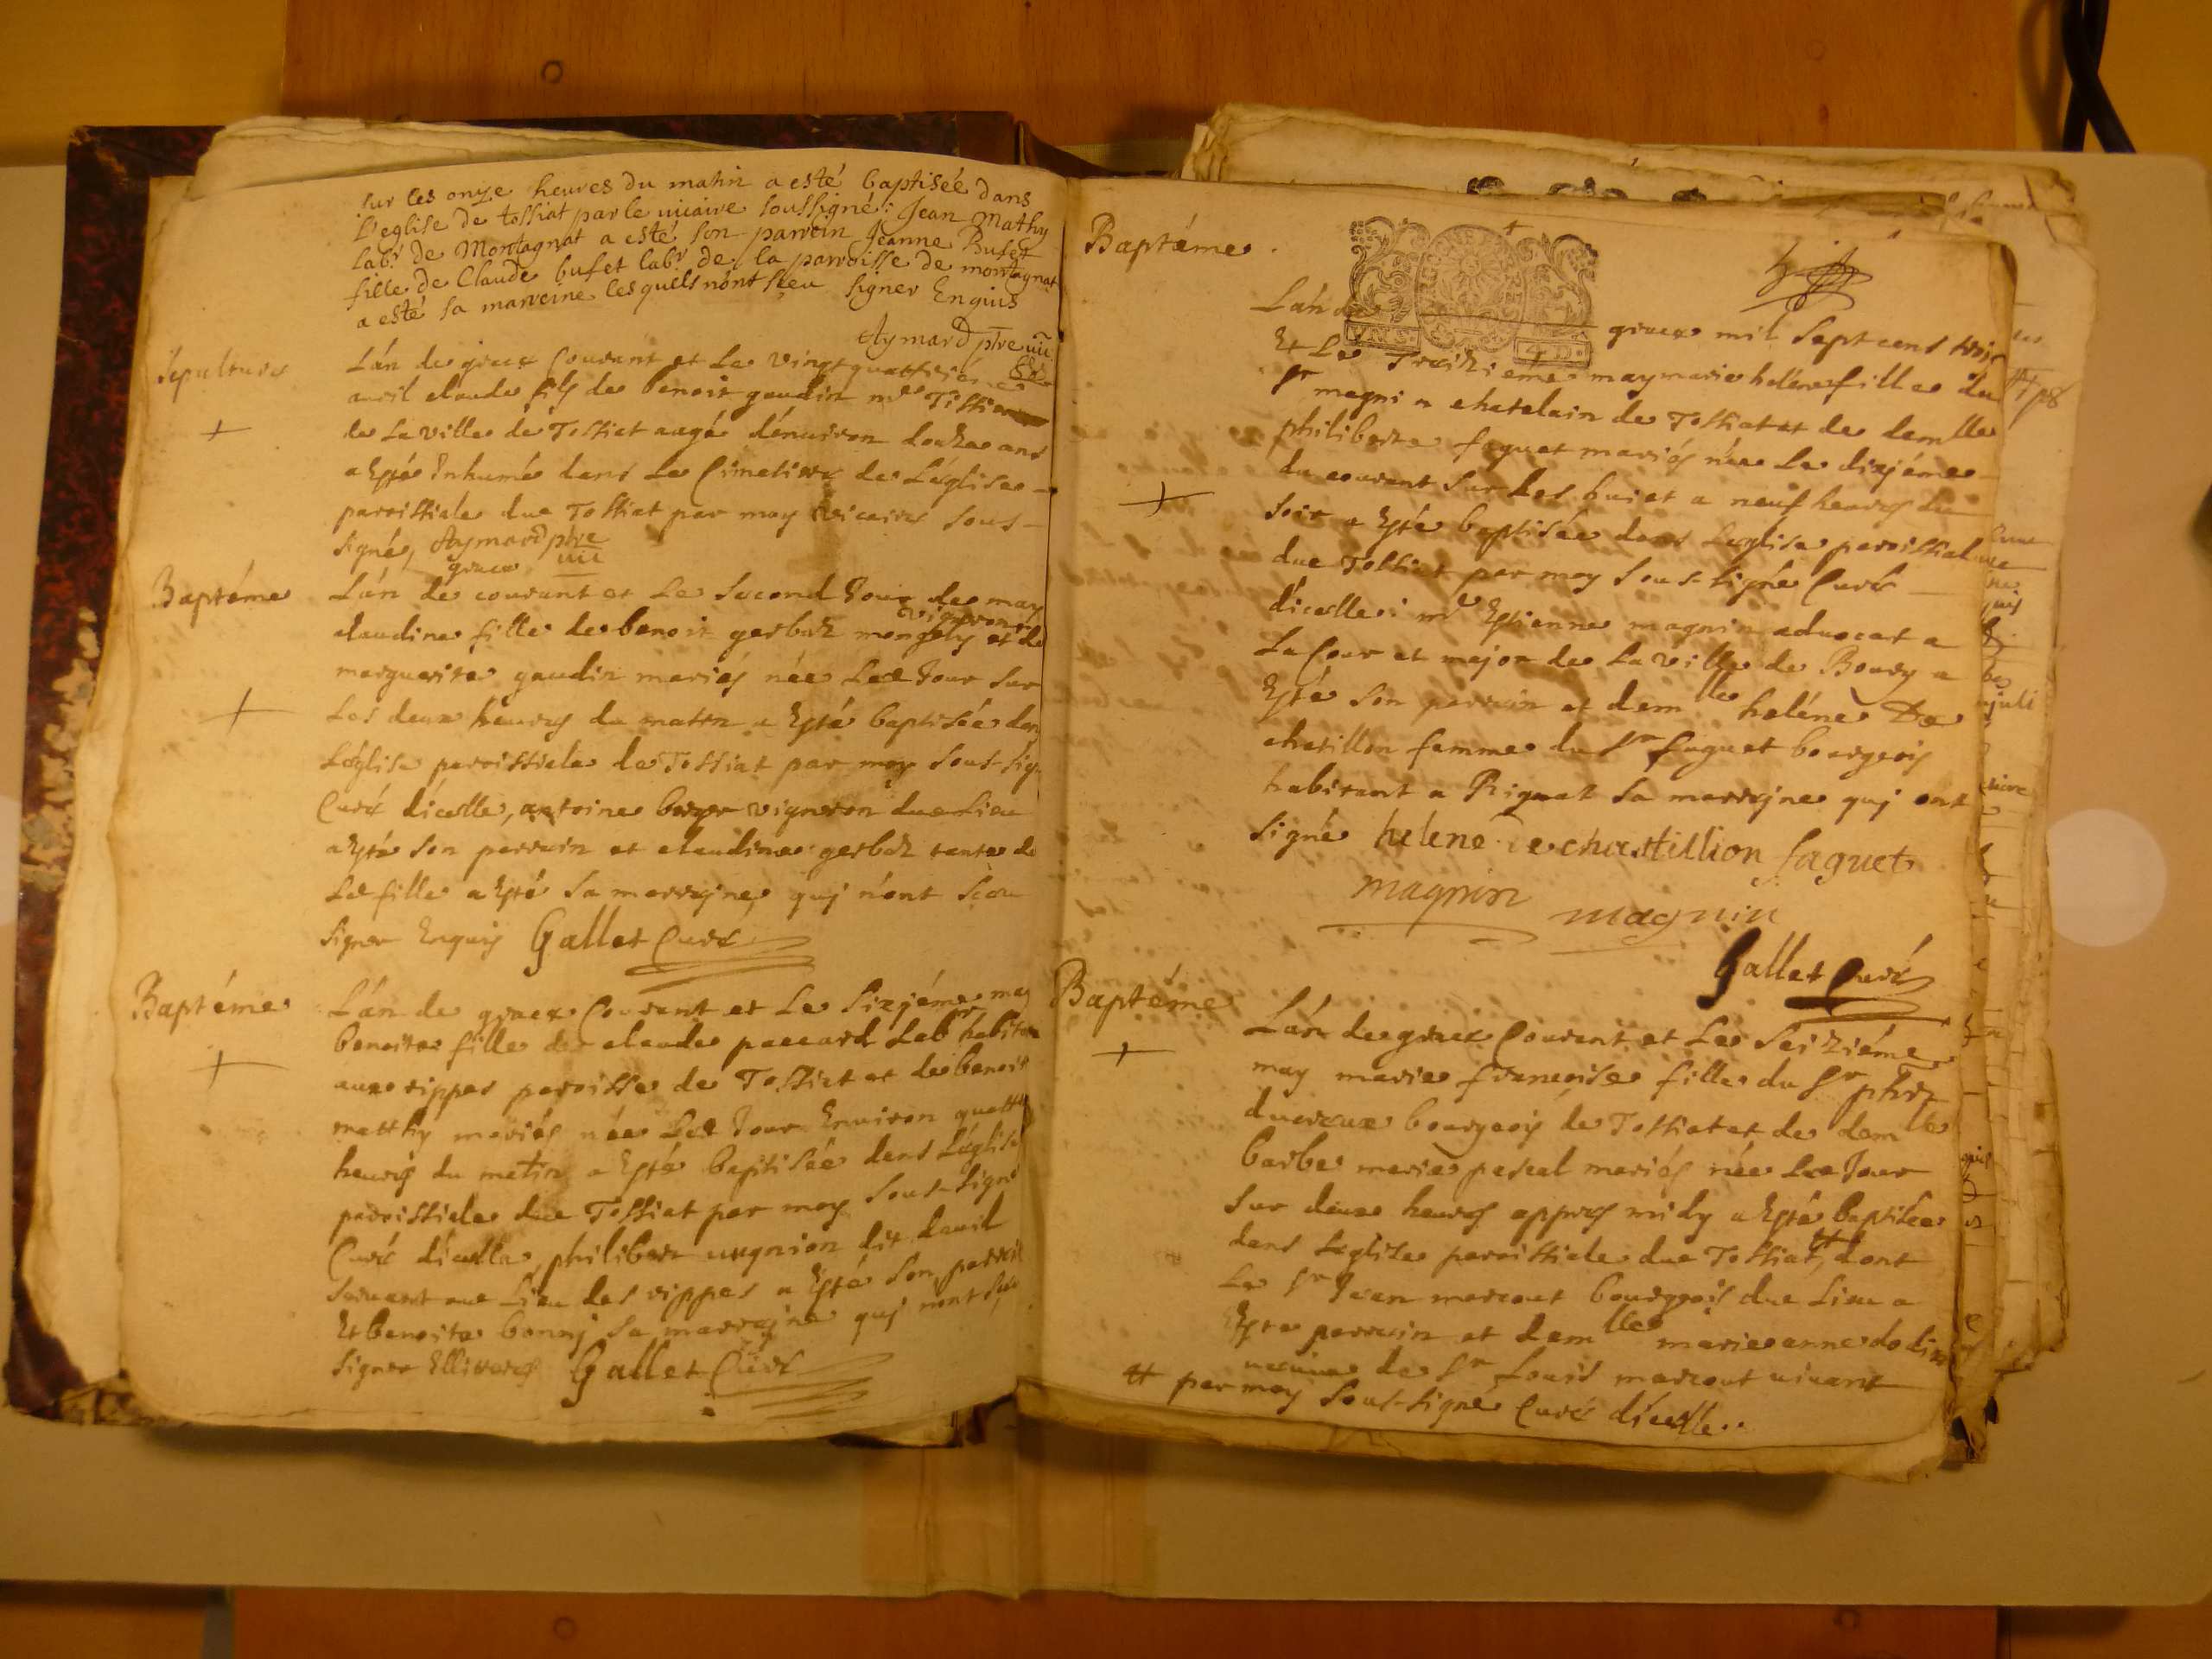 sur les onze heures du matin a esté baptisée dans
L'eglise de tossiat par le vicaire soussigné: Jean Mathy
lab.r de Montagnat a esté son parrein Jeanne Bufet
fille de Claude bufet lab.r de la parroisse de montagnat
a esté sa marreine lesquels n'ont sceu signer Enquis
Aymard ptre vic
Sepulture
L'an de grace Courant et Le vingt quattrieme
avril claude fils de benoit gaudin me Tissier
de La ville de Tossiat aagé d'enuiron douze ans
a Esté Inhumé dans Le Cimetiere de L'église
parrissiale due Tossiat par moy vicaire sous-
signé, Aymard ptre
vic
grace
Baptéme
L'an de courant et Le second Jour de may
vigneron
claudine fille de benoit gerbaz et de
marguerite gaudin mariés née Led Jour sur
Les deux heures du matin a Esté baptisée dans
L'église parrissiale de Tossiat par moy sous-sig
Curé d'icelle, antoine vigneron due Lieu
a Esté son parrain et claudine gerbaz tante de
Lad fille a Esté sa marrajne, quj n'ont sceu
signer Enquis Gallet Curé
Baptéme
L'an de grace Courant et Le sixjéme may
benoite fille de claude paccard Lab.r habita
aux rippes parroisse de Tossiat et de benoit
matthy mariés née Led Jour Enuiron quattre
heures du matin a Esté baptisée dans L'église
parrissiale due Tossiat par moy sous-signé
Curé d'icelle, philibert dit dauid
seruant aue Lieu des rippes a Esté son parrain
Et benoite sa marrajne quj n'ont sceu
signer Gallet Curé
Baptéme
L'an de grace mil sept cens trois
Et Le Treizieme may marie heléne fille du
Sr magnin chatelain de Tossiat et de demlle
philiberte faguet mariés née Le dixjéme
du courant sur Les huict a neuf heures du
soir a Esté baptisée dans L'église parrissiale
due Tossiat par moy sous-signé Curé
d'icelle: mr Estienne magnin aduocat a
La Cour et major de La ville de Bourg a
Esté son parrain et demlle heléne De
chatillon femme du Sr faguet bourgeois
habitant a Rignat sa marrajne quj ont
signé helene de chastillion faguet
magnin magnin
Gallet Curé
Baptéme
L'an de grace Courant et Le seiziéme
may marie françoise fille du Sr phrt
ducreux bourgeois de Tossiat et de demlle
barbe marie pascal mariés née Led Jour
sur deux heures appres midy a Esté baptisée
dans L'église parrissiale due Tossiat, # dont
Le Sr Jean marcout bourgeois due Lieu a
Esté parrain et demlle marie anne
de Sr Louis marcout viuant
# par moy sous-signé Curé d'icelle..